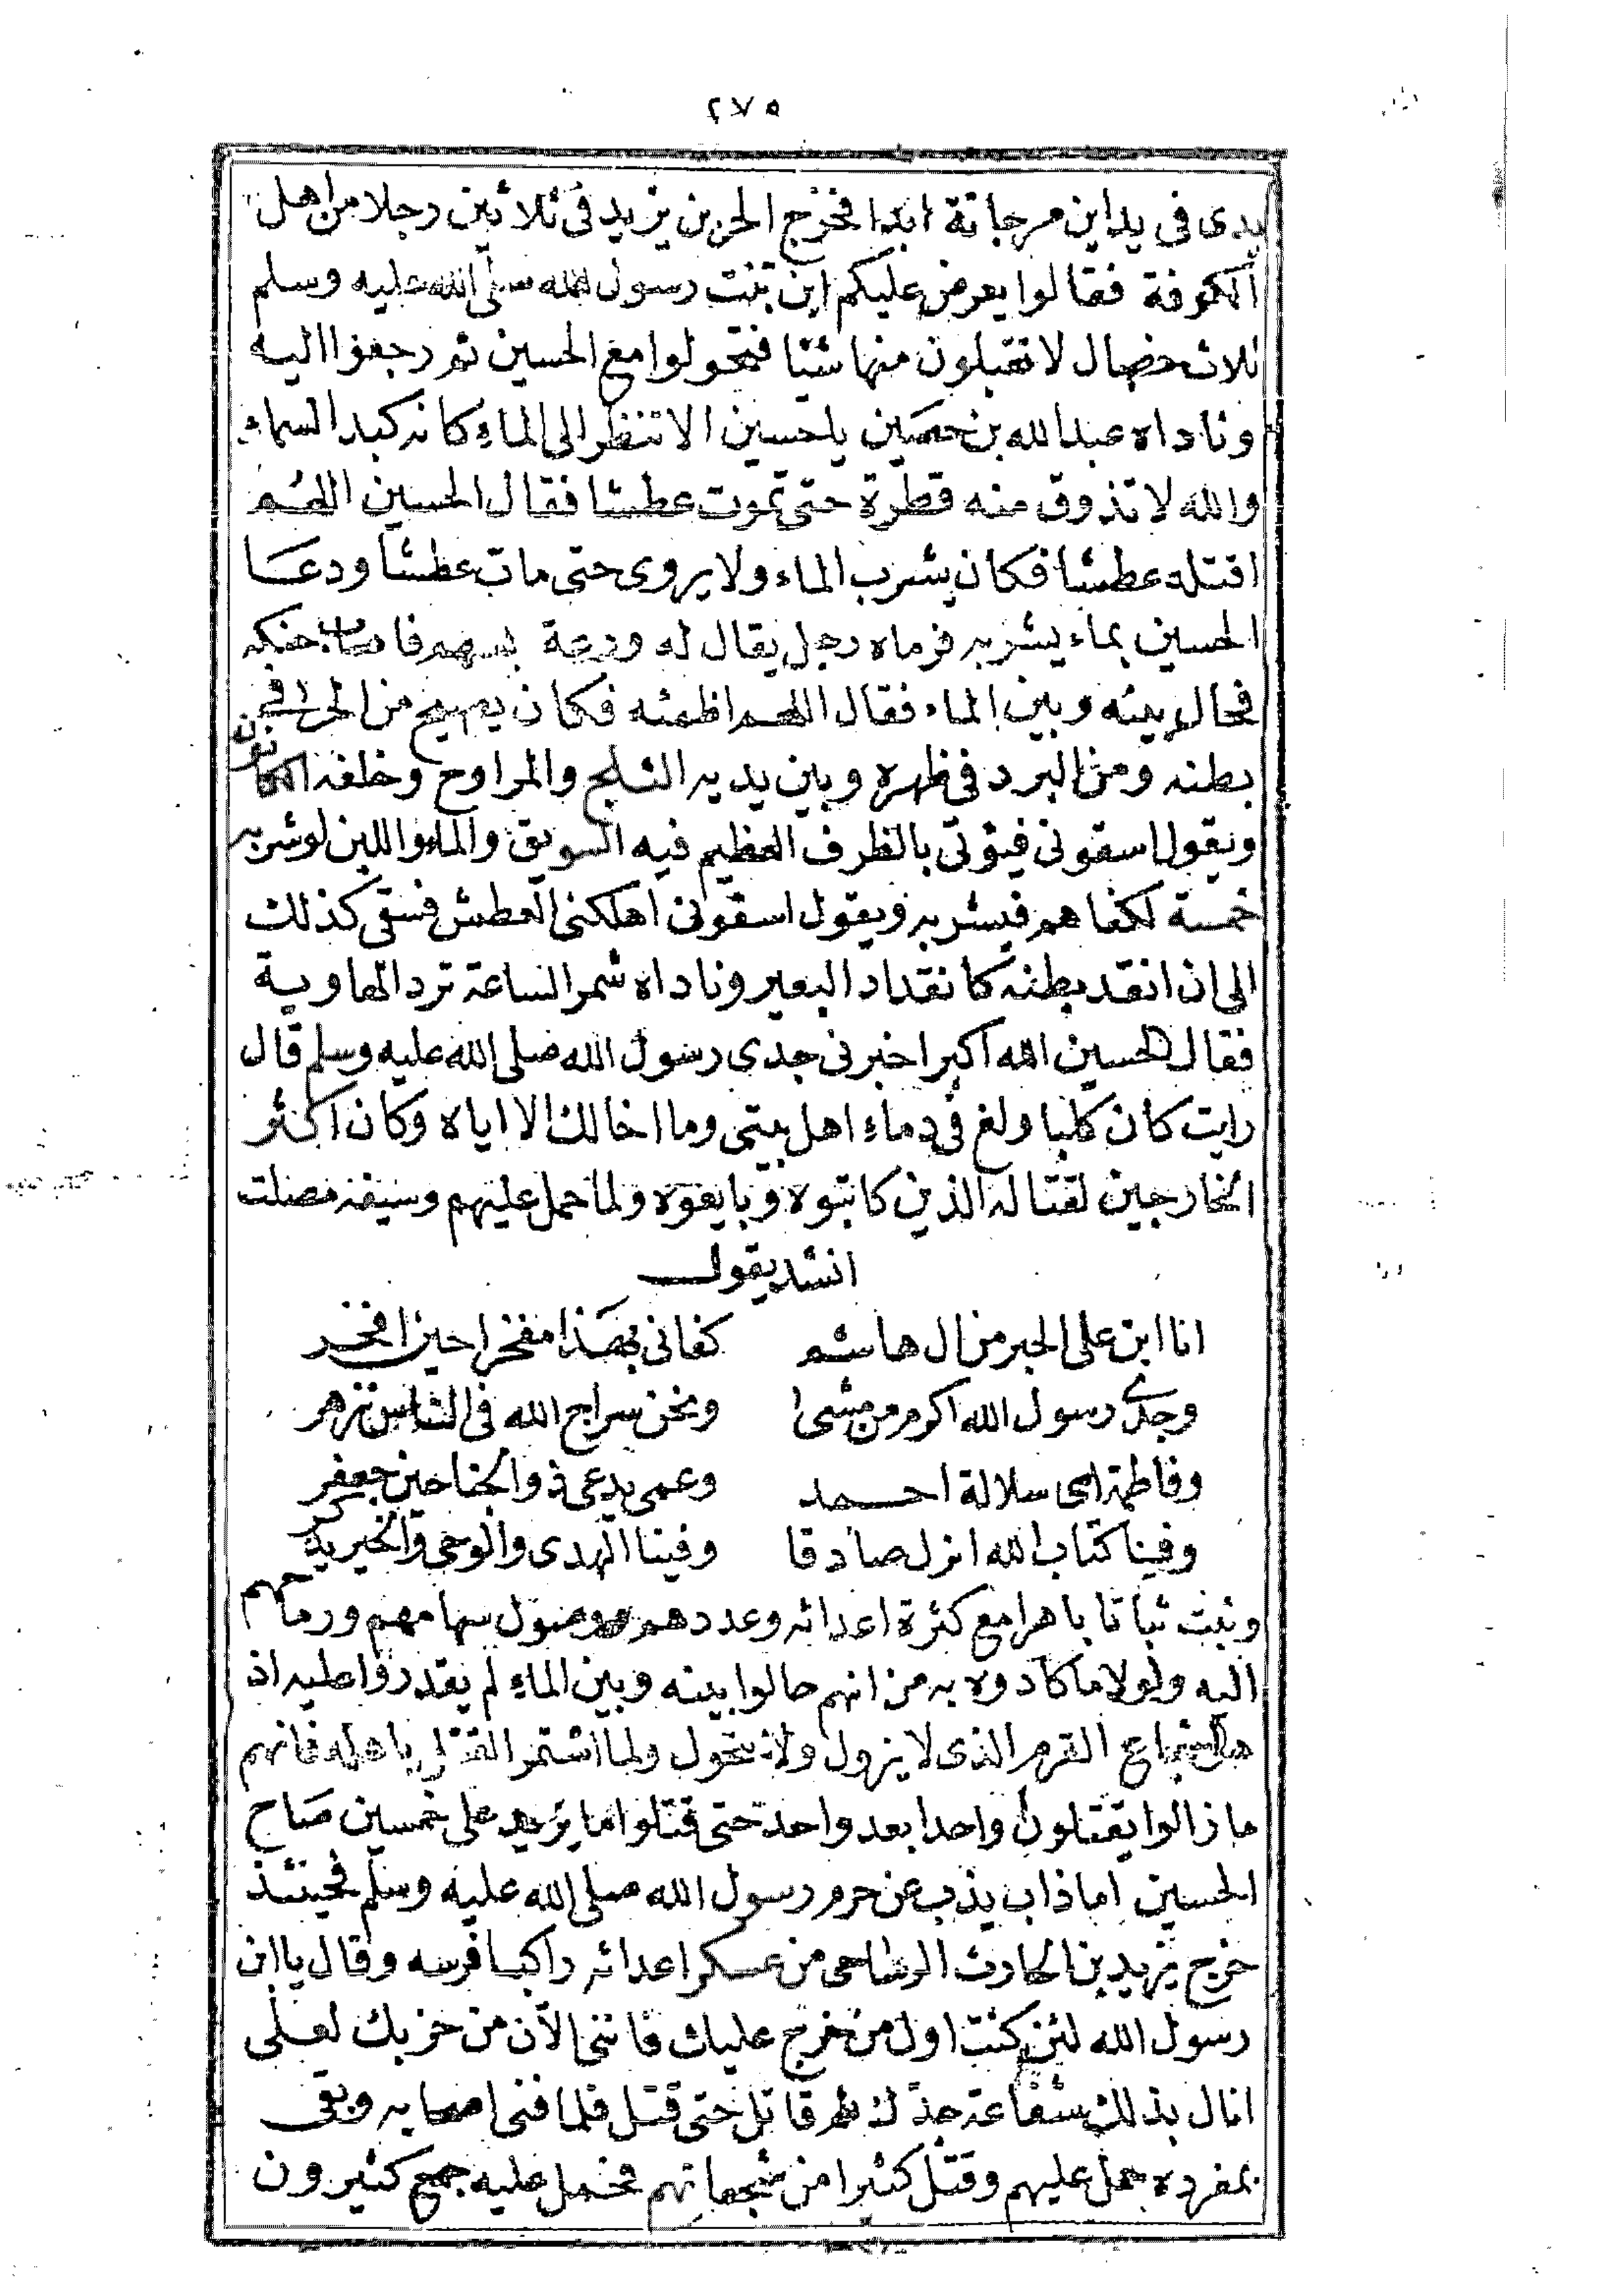 ٢٧٥
يدى فى يد ابن مرجانة ابدا فخرج الحر بن يزيد فى ثلاثين رجلا من اهل
الكوفة فقالوا يعرض عليكم ابن بنت رسول الله صلى الله عليه وسلم
ثلاث خصال لا تقبلون منها شئا فتحولوا مع الحسين ثم رجعوا اليه
وناداه عبد الله بن حصين يا حسين الا تنظر الى الماء كانه كبد السماء
والله لا تذوق منه قطرة حتى تموت عطشا فقال الحسين اللهم
اقتله عطشا فكان يشرب الماء ولا يروى حتى مات عطشا ودعا
الحسين بماء يشربه فرماه رجل يقال له وزرعة بسهم فاصاب حنكه
فحال بينه وبين الماء فقال اللهم اظمئه فكان يصيح من الحر فى
بطنه ومن البرد فى ظهره وبين يديه الثلج والمراوح وخلفه الكانون
ويقول اسقونى فيؤتى بالظرف العظيم فيه السويق والماء واللبن لو شربه
خمسة لكفاهم فيشربه ويقول اسقونى اهلكنى العطش فسقى كذلك
الى ان انقد بطنه كانقداد البعير وناداه شمر الساعة ترد الهاوية
فقال الحسين الله اكبر اخبرنى جدى رسول الله صلى الله عليه وسلم قال
رايت كان كلبا ولغ فى دماء اهل بيتى وما اخالك الا اياه وكان اكثر
الخارجين لقتاله الذين كاتبوه وبايعوه ولما حمل عليهم وسيفه مصلت
انشد يقول
انا ابن على الحبر من ال هاشم كفانى بهذا مفخرا حين افخر
وجدى رسول الله اكرم من مشى ونحن سراج الله فى الناس نزهر
وفاطمة امى سلالة احمد وعمى يدعى ذو الجناحين جعفر
وفينا كتاب الله انزل صادقا وفينا الهدى والوحى والخير يذكر
وثبت ثباتا باهرا مع كثرة اعدائه وعددهم ووصول سهامهم ورماحهم
اليه ولولا ما كادوه به من انهم حالوا بينه وبين الماء لم يقدروا عليه اذ
هو الشجاع القرم الذى لا يزول ولا يتحول ولما استمر القتل باهله فانهم
ما زالوا يقتلون واحدا بعد واحد حتى قتلوا ما يزيد على خمسين صاح
الحسين اما ذاب يذب عن حرم رسول الله صلى الله عليه وسلم فحينئذ
خرج يزيد بن الحارث الرياحى من عسكر اعدائه راكبا فرسه وقال يا ابن
رسول الله لئن كنت اول من خرج عليك فاننى الآن من حزبك لعلى
انال بذلك شفاعة جدك ثم قاتل حتى قتل فلما فنى اصحابه وبقى
بمفرده حمل عليهم وقتل كثيرا من شجعانهم فحمل عليه جمع كثيرون